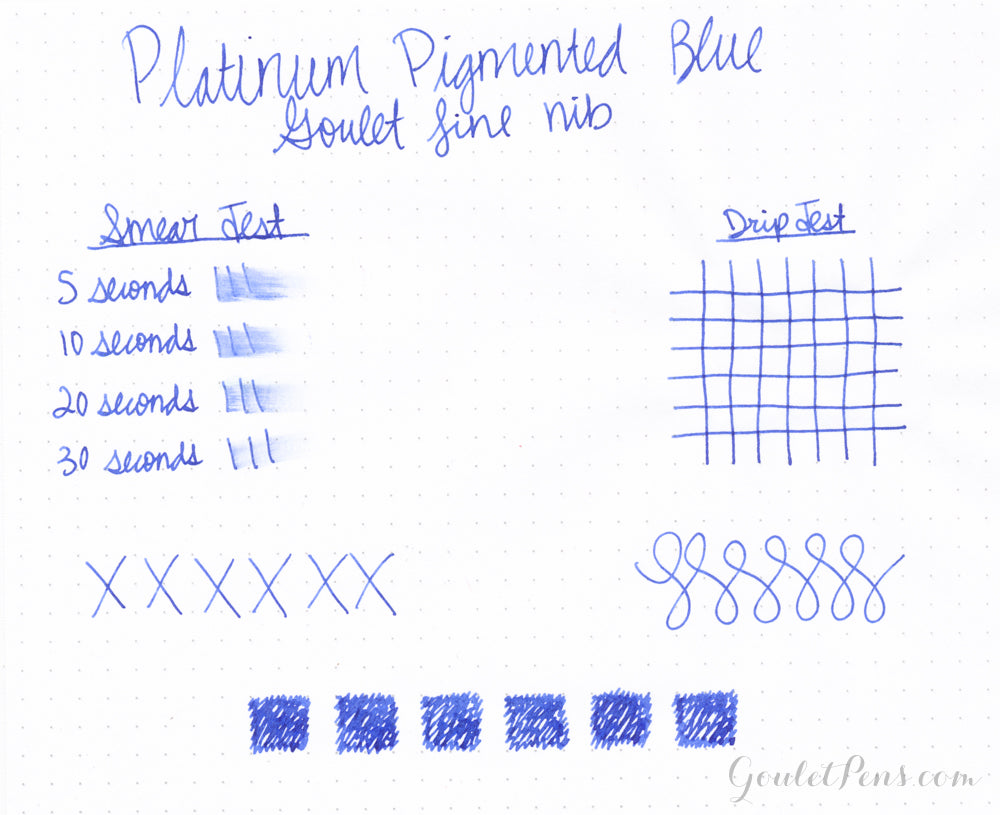 Platinum Pigmented Blue
Goulet fine nib
Smear Test
Drip Test
5 seconds
10 seconds
20 seconds
30 seconds
X X X X X X
GouletPens.com